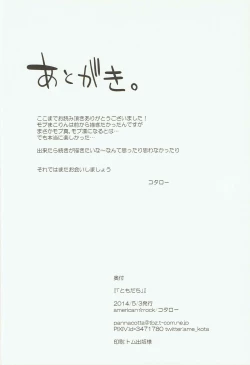 あとがき。
ここまでお読み頂きありがとうございました！
モブまこりんは前から描きたかったんですが
まさかモブ真、モブ凛になるとは…
でも本当に楽しかった…
出来たら続きが描きたいな〜なんて思ったり思わなかったり
それではまたお会いしましょう
コタロー
奥付
『ともだち』
2014/5/3発行
american†rock/コタロー
PIXIV/id×3471780 twitter/ame_kota
印刷:トム出版様